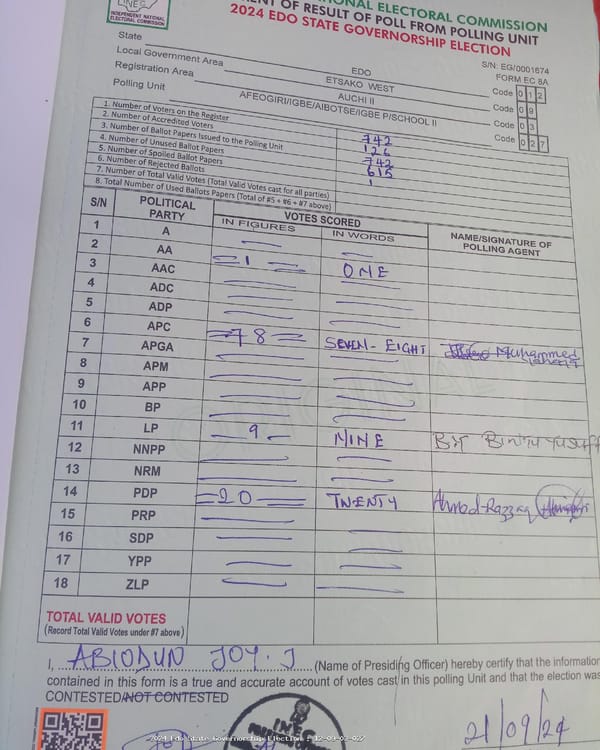 INEC
INDEPENDENT NATIONAL
ELECTORAL COMMISSION
NAL ELECTORAL COMMISSION
ENT OF RESULT OF POLL FROM POLLING UNIT
2024 EDO STATE GOVERNORSHIP ELECTION
S/N: EG/0001674
FORM EC 8A
State EDO Code 0 1 2
Local Government Area ETSAKO WEST Code 0 9
Registration Area AUCHI II Code 0 3
Polling Unit AFEOGIRI/IGBE/AIBOTSE/IGBE P/SCHOOL II Code 0 2 7
1. Number of Voters on the Register 742
2. Number of Accredited Voters 126
3. Number of Ballot Papers Issued to the Polling Unit 742
4. Number of Unused Ballot Papers 615
5. Number of Spoiled Ballot Papers 1
6. Number of Rejected Ballots
7. Number of Total Valid Votes (Total Valid Votes cast for all parties)
8. Total Number of Used Ballots Papers (Total of #5 + #6 + #7 above)
S/N POLITICAL PARTY VOTES SCORED NAME/SIGNATURE OF POLLING AGENT
IN FIGURES IN WORDS
1 A
2 AA
3 AAC =1= ONE
4 ADC
5 ADP
6 APC =78= SEVEN-EIGHT Muhammed
7 APGA
8 APM
9 APP
10 BP
11 LP -9- NINE Bintu Yusuff
12 NNPP
13 NRM
14 PDP =20= TWENTY Ahmed-Razzaq
15 PRP
16 SDP
17 YPP
18 ZLP
TOTAL VALID VOTES
(Record Total Valid Votes under #7 above)
I, ABIODUN JOY. J (Name of Presiding Officer) hereby certify that the information
contained in this form is a true and accurate account of votes cast in this polling Unit and that the election was
CONTESTED/NOT CONTESTED
21/09/24